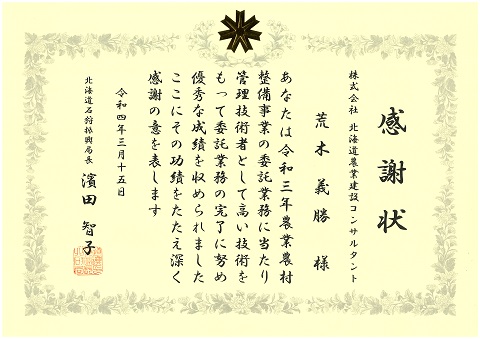 感謝状
株式会社 北海道農業建設コンサルタント
荒木 義勝 様
あなたは令和三年農業農村
整備事業の委託業務に当たり
管理技術者として高い技術を
もって委託業務の完了に努め
優秀な成績を収められました
ここにその功績をたたえ深く
感謝の意を表します
令和四年三月十五日
北海道石狩振興局長 濱田 智子